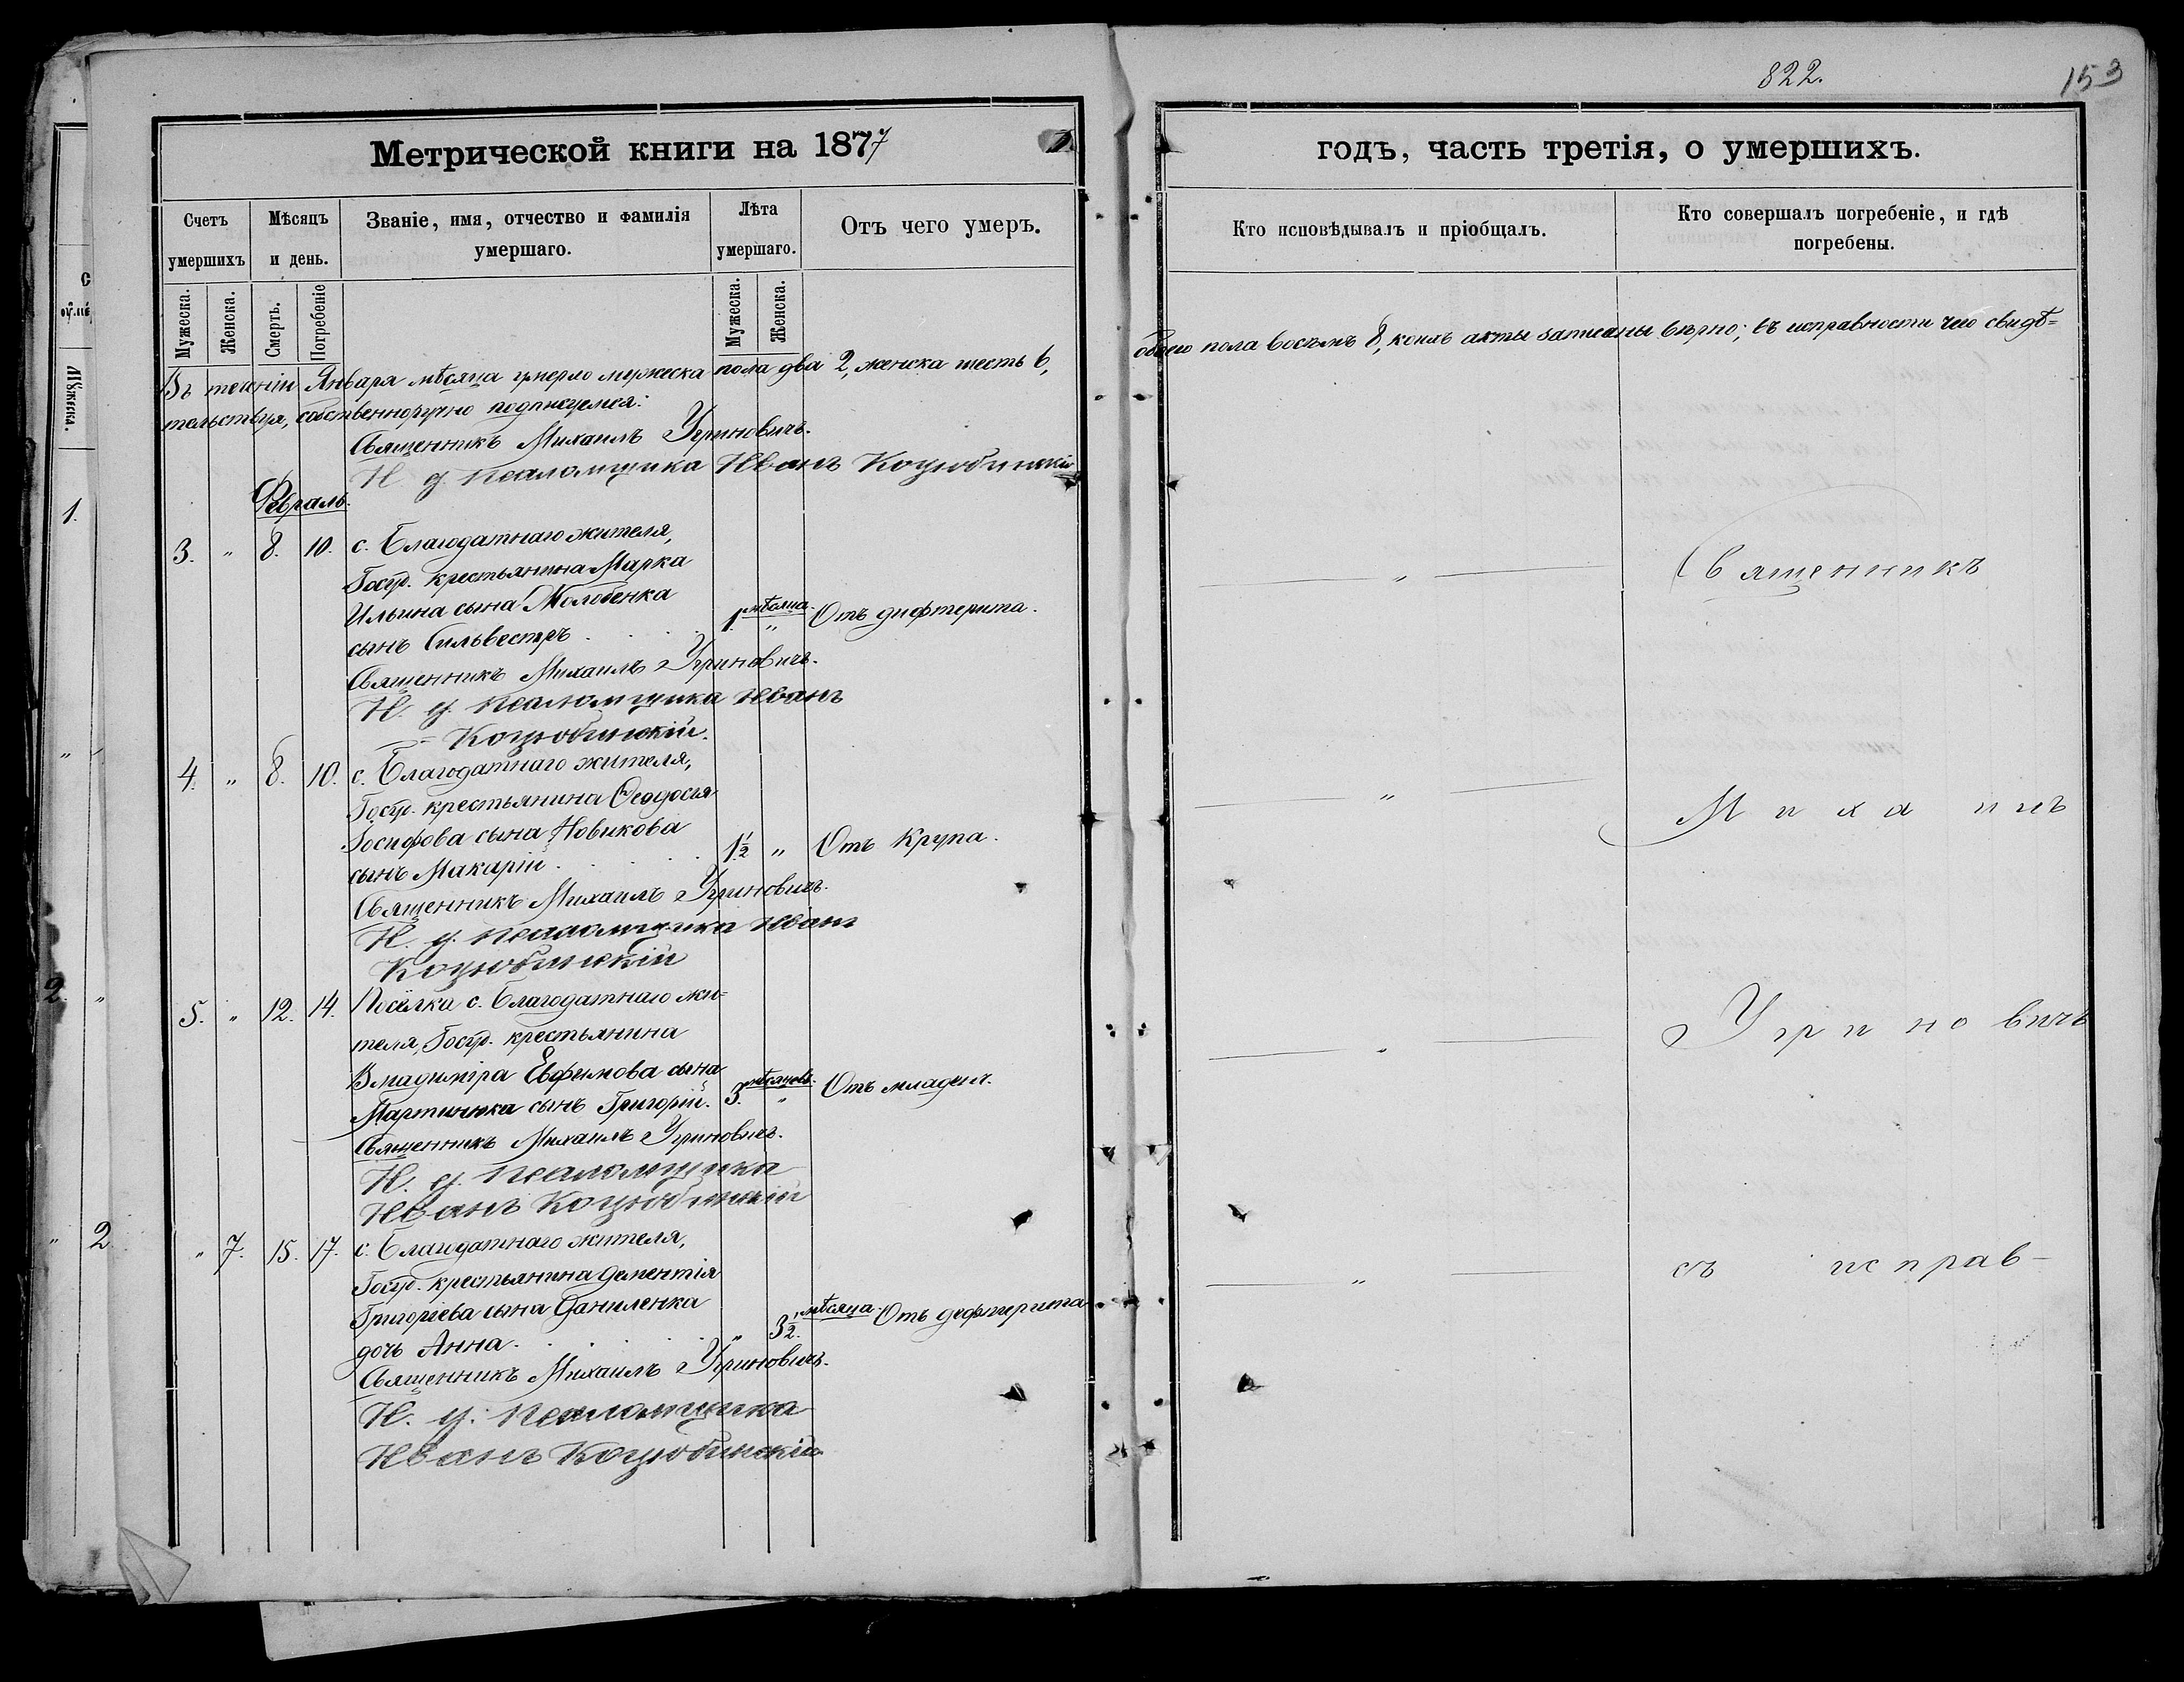 822.
153
Метрической книги на 1877
годъ, часть третія, о умершихъ.
Счетъ умершихъ
Мѣсяцъ и день.
Званіе, имя, отчество и фамилія умершаго.
Лѣта умершаго.
Отъ чего умеръ.
Кто исповѣдывалъ и пріобщалъ.
Кто совершалъ погребеніе, и гдѣ погребены.
Мужеска.
Женска.
Смерть.
Погребеніе
Мужеска.
Женска.
Въ теченіи Января мѣсяца умерло мужеска пола два 2, женска шесть 6, обоего пола восемъ 8, коихъ акты записаны вѣрно; въ исправности чего свидѣ=
тельствуя, собственноручно подписуемся:
Священникъ Михаилъ Угриновичъ.
И. д. псаломщика Иванъ Коцюбинскій
Февраль.
3. " 8. 10. с. Благодатнаго жителя,
Госуд. крестьянина Марка
Ильина сына Молобенка
сынъ Сильвестръ . . . . 1. мѣсяца. " Отъ дифтерита.
Священникъ Михаилъ Угриновичъ.
И. д. псаломщика Иванъ
Коцюбинскій.
" Священникъ
4. " 8. 10. с. Благодатнаго жителя,
Госуд. крестьянина Ѳеодосія
Іосифова сына Новикова
сынъ Макарій . . . . 1 1/2 " Отъ Крупа.
Священникъ Михаилъ Угриновичъ.
И. д. псаломщика Иванъ
Коцюбинскій
" Михаилъ
5. " 12. 14. Посёлка с. Благодатнаго жи=
теля, Госуд. крестьянина
Владиміра Евфимова сына
Мартиненка сынъ Григорій. 3. мѣсяцевъ. " Отъ младенч.
Священникъ Михаилъ Угриновичъ.
И. д. псаломщика
Иванъ Коцюбинскій
" Угриновичъ
" 7. 15. 17. с. Благодатнаго жителя,
Госуд. крестьянина Дементія
Григоріева сына Даниленка
дочь Анна. . . . . " 3 1/2. мѣсяца. Отъ дефтерита
Священникъ Михаилъ Угриновичъ.
И. д. псаломщика
Иванъ Коцюбинскій
" съ исправ-